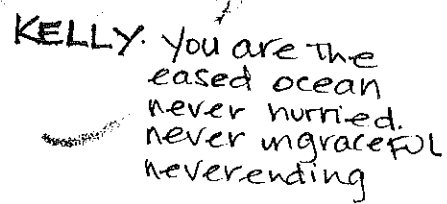 KELLY. you are the
eased ocean
never hurried.
never ungraceful
neverending